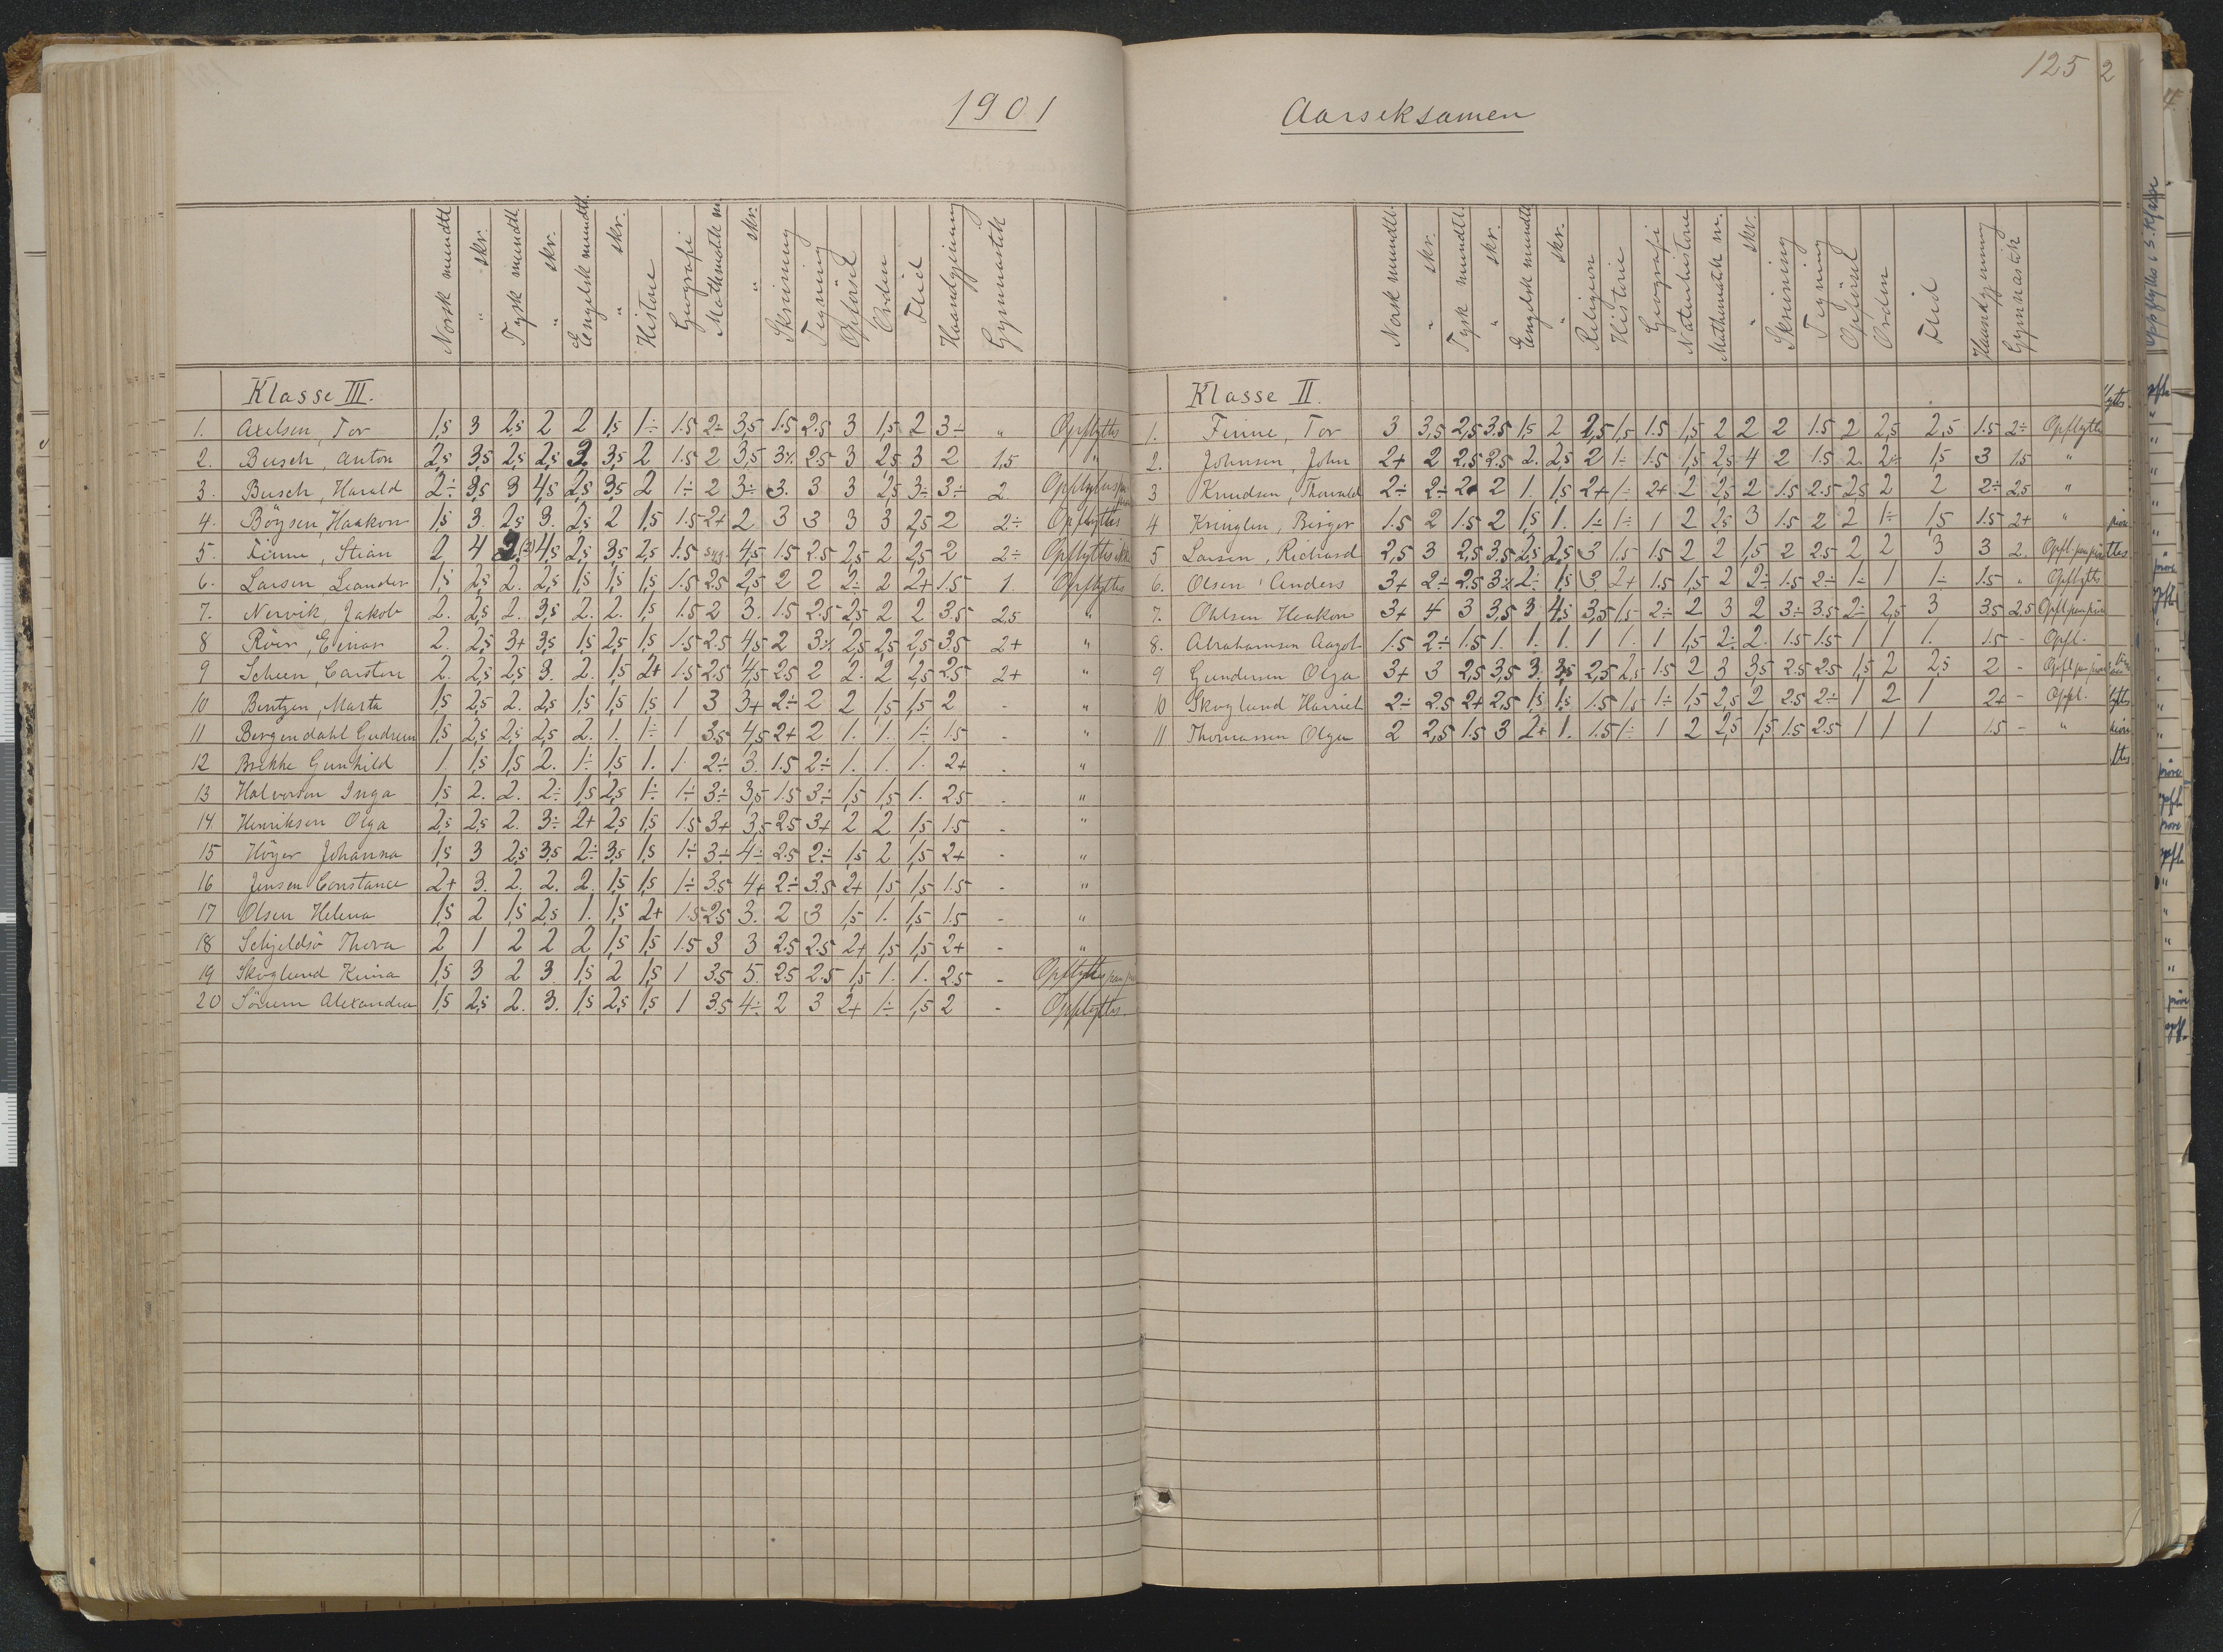 1901
Norsk mundtl. " skr. Tysk mundtl " skr. Engelsk mundtl. " skr. Historie Geografi Mathematik m " skr. Skrivning Tegning Opførsel Orden Flid Haandgjerning Gymnastik
Klasse III.
1. Axelsen, Tor 1,5 3 2,5 2 2 1,5 1÷ 1.5 2÷ 3,5 1.5 2.5 3 1,5 2 3÷ " Opflyttes
2. Busch, Anton 2,5 3,5 2,5 2,5 3 3,5 2 1.5 2 3,5 3½ 2.5 3 2,5 3 2 1,5 "
3. Busch, Harald 2÷ 3,5 3 4,5 2,5 3,5 2 1÷ 2 3÷ 3. 3 3 2,5 3÷ 3÷ 2
4. Böysen, Haakon 1,5 3. 2,5 3. 2,5 2 1,5 1.5 2+ 2 3 3 3 3 2,5 2 2÷ Opflyttes
5. Finne, Stian 2 4 2(2) 4,5 2,5 3,5 2,5 1.5 syg. 4,5 1.5 2.5 2,5 2 2,5 2 2÷ Opflyttes ikke
6. Larsen Leander 1,5 2,5 2. 2,5 1,5 1,5 1,5 1.5 2.5 2,5 2 2 2÷ 2 2+ 1.5 1. Opflyttes
7. Nervik, Jakob 2. 2,5 2. 3,5 2. 2. 1,5 1.5 2 3. 1.5 2.5 2,5 2 2 3.5 2,5 "
8 Röer, Einar 2. 2,5 3+ 3,5 1,5 2,5 1,5 1.5 2.5 4,5 2 3½ 2,5 2,5 2,5 3.5 2+ "
9 Scheen, Carsten 2. 2,5 2,5 3. 2. 1,5 2+ 1.5 2.5 4,5 2.5 2 2. 2 2,5 2.5 2+ "
10 Bentzen, Marta 1,5 2,5 2. 2,5 1,5 1,5 1,5 1 3 3+ 2÷ 2 2 1,5 1,5 2 - "
11 Bergendahl Gudrun 1,5 2,5 2,5 2,5 2. 1. 1÷ 1 3.5 4,5 2+ 2 1. 1. 1÷ 1.5 - "
12 Brekke Gunhild 1. 1,5 1,5 2. 1÷ 1,5 1. 1. 2÷ 3. 1.5 2÷ 1. 1. 1. 2+ - "
13 Halvorsen Inga 1,5 2. 2. 2÷ 1,5 2,5 1÷ 1÷ 3÷ 3,5 1.5 3÷ 1,5 1,5 1. 2.5 - "
14 Henriksen Olga 2,5 2,5 2. 3÷ 2+ 2,5 1,5 1.5 3+ 3,5 2.5 3+ 2 2 1,5 1.5 - "
15 Höyer Johanna 1,5 3 2,5 3,5 2÷ 3,5 1,5 1÷ 3÷ 4÷ 2.5 2÷ 1,5 2 1,5 2+ - "
16 Jensen Constance 2+ 3. 2. 2. 2. 1,5 1,5 1÷ 3.5 4+ 2÷ 3.5 2+ 1,5 1,5 1.5 - "
17 Olsen Helena 1,5 2 1,5 2,5 1. 1,5 2+ 1.5 2.5 3. 2 3 1,5 1. 1,5 1.5 - "
18 Schjeldsö Thora 2 1 2 2 2 1,5 1,5 1.5 3 3 2.5 2.5 2+ 1,5 1,5 2+ - "
19 Skoglund 1,5 3 2 3. 1,5 2 1,5 1 3.5 5. 2.5 2.5 1,5 1. 1. 2.5 - Opflyttes
20 Sörum Alexandra 1,5 2,5 2. 3. 1,5 2,5 1,5 1 3.5 4÷ 2 3 2+ 1÷ 1,5 2 - Opflyttes.
125
2
Aarseksamen
Norsk mundtl. " skr. Tysk mundtl. " skr. Engelsk mundtl " skr. Religion Historie Geografi Naturhistorie Mathematik m. " skr. Skrivning Tegning Opførsel Orden Flid Haandgjerning Gymnastik
Klasse II.
1. Finne, Tor 3 3,5 2,5 3.5 1,5 2 2,5 1,5 1.5 1,5 2 2 2 1.5 2 2,5 2,5 1.5 2÷ Opflyttes
2. Johnsen, John 2+ 2 2.5 2.5 2. 2,5 2 1÷ 1.5 1,5 2,5 4 2 1.5 2. 2÷ 1,5 3 1.5 "
3 Knudsen, Thorvald 2÷ 2÷ 2 2 1. 1,5 2+ 1÷ 2+ 2 2,5 2 1.5 2.5 2,5 2 2 2÷ 2,5 "
4 Kringlen, Birger 1.5 2 1.5 2 1,5 1. 1÷ 1÷ 1 2 2,5 3 1.5 2 2 1÷ 1,5 1.5 2+ "
5 Larsen, Richard 2,5 3 2,5 3.5 2,5 2,5 3 1.5 1.5 2 2 1,5 2 2.5 2 2 3 3 2.
6. Olsen, Anders 3+ 2÷ 2.5 3½ 2÷ 1,5 3 2+ 1.5 1,5 2 2÷ 1.5 2÷ 1÷ 1 1÷ 1.5 - Opflyttes
7. Ohlsen Haakon 3+ 4 3 3,5 3 4,5 3,5 1,5 2÷ 2 3 2 3÷ 3.5 2÷ 2,5 3 3.5 2.5
8. Abrahamsen Aagot 1.5 2÷ 1.5 1. 1. 1. 1 1. 1 1,5 2÷ 2. 1.5 1.5 1 1 1. 1.5 - Opfl.
9 Gundersen Olga 3+ 3 2,5 3,5 3. 3,5 2,5 2,5 1.5 2 3 3,5 2.5 2.5 1,5 2 2,5 2 -
10 Skoglund Harriet 2÷ 2.5 2+ 2,5 1,5 1,5 1.5 1,5 1÷ 1,5 2,5 2 2.5 2÷ 1 2 1 2+ - Oppl.
11 Thomassen Olga 2 2,5 1.5 3 2+ 1. 1.5 1÷ 1 2 2,5 1,5 1.5 2.5 1 1 1 1.5 - "